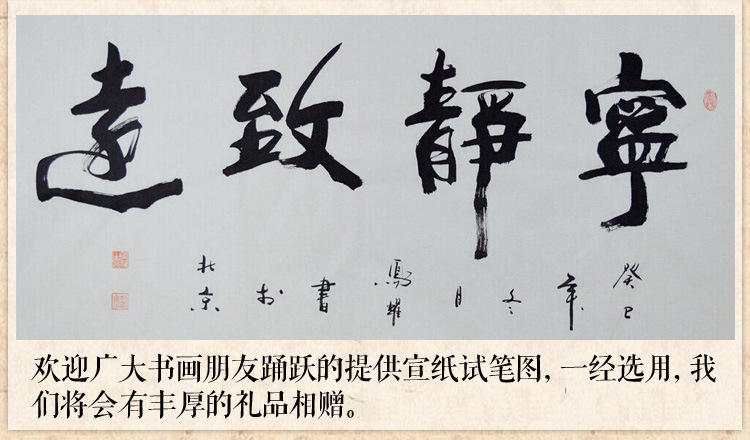 寧靜致遠
癸巳年冬月馬耀書於北京
欢迎广大书画朋友踊跃的提供宣纸试笔图，一经选用，我
们将会有丰厚的礼品相赠。